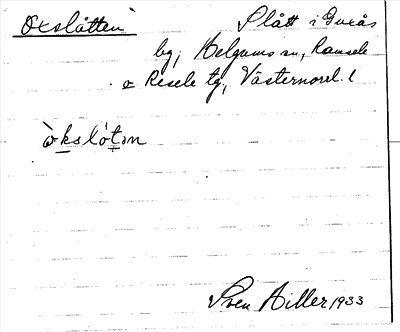 Oxslåtten Slått i Gusås
by, Helgums sn, Ramsele
o Resele tg, Västernorrl. l
òkslót̠ən
Sven Hiller 1933